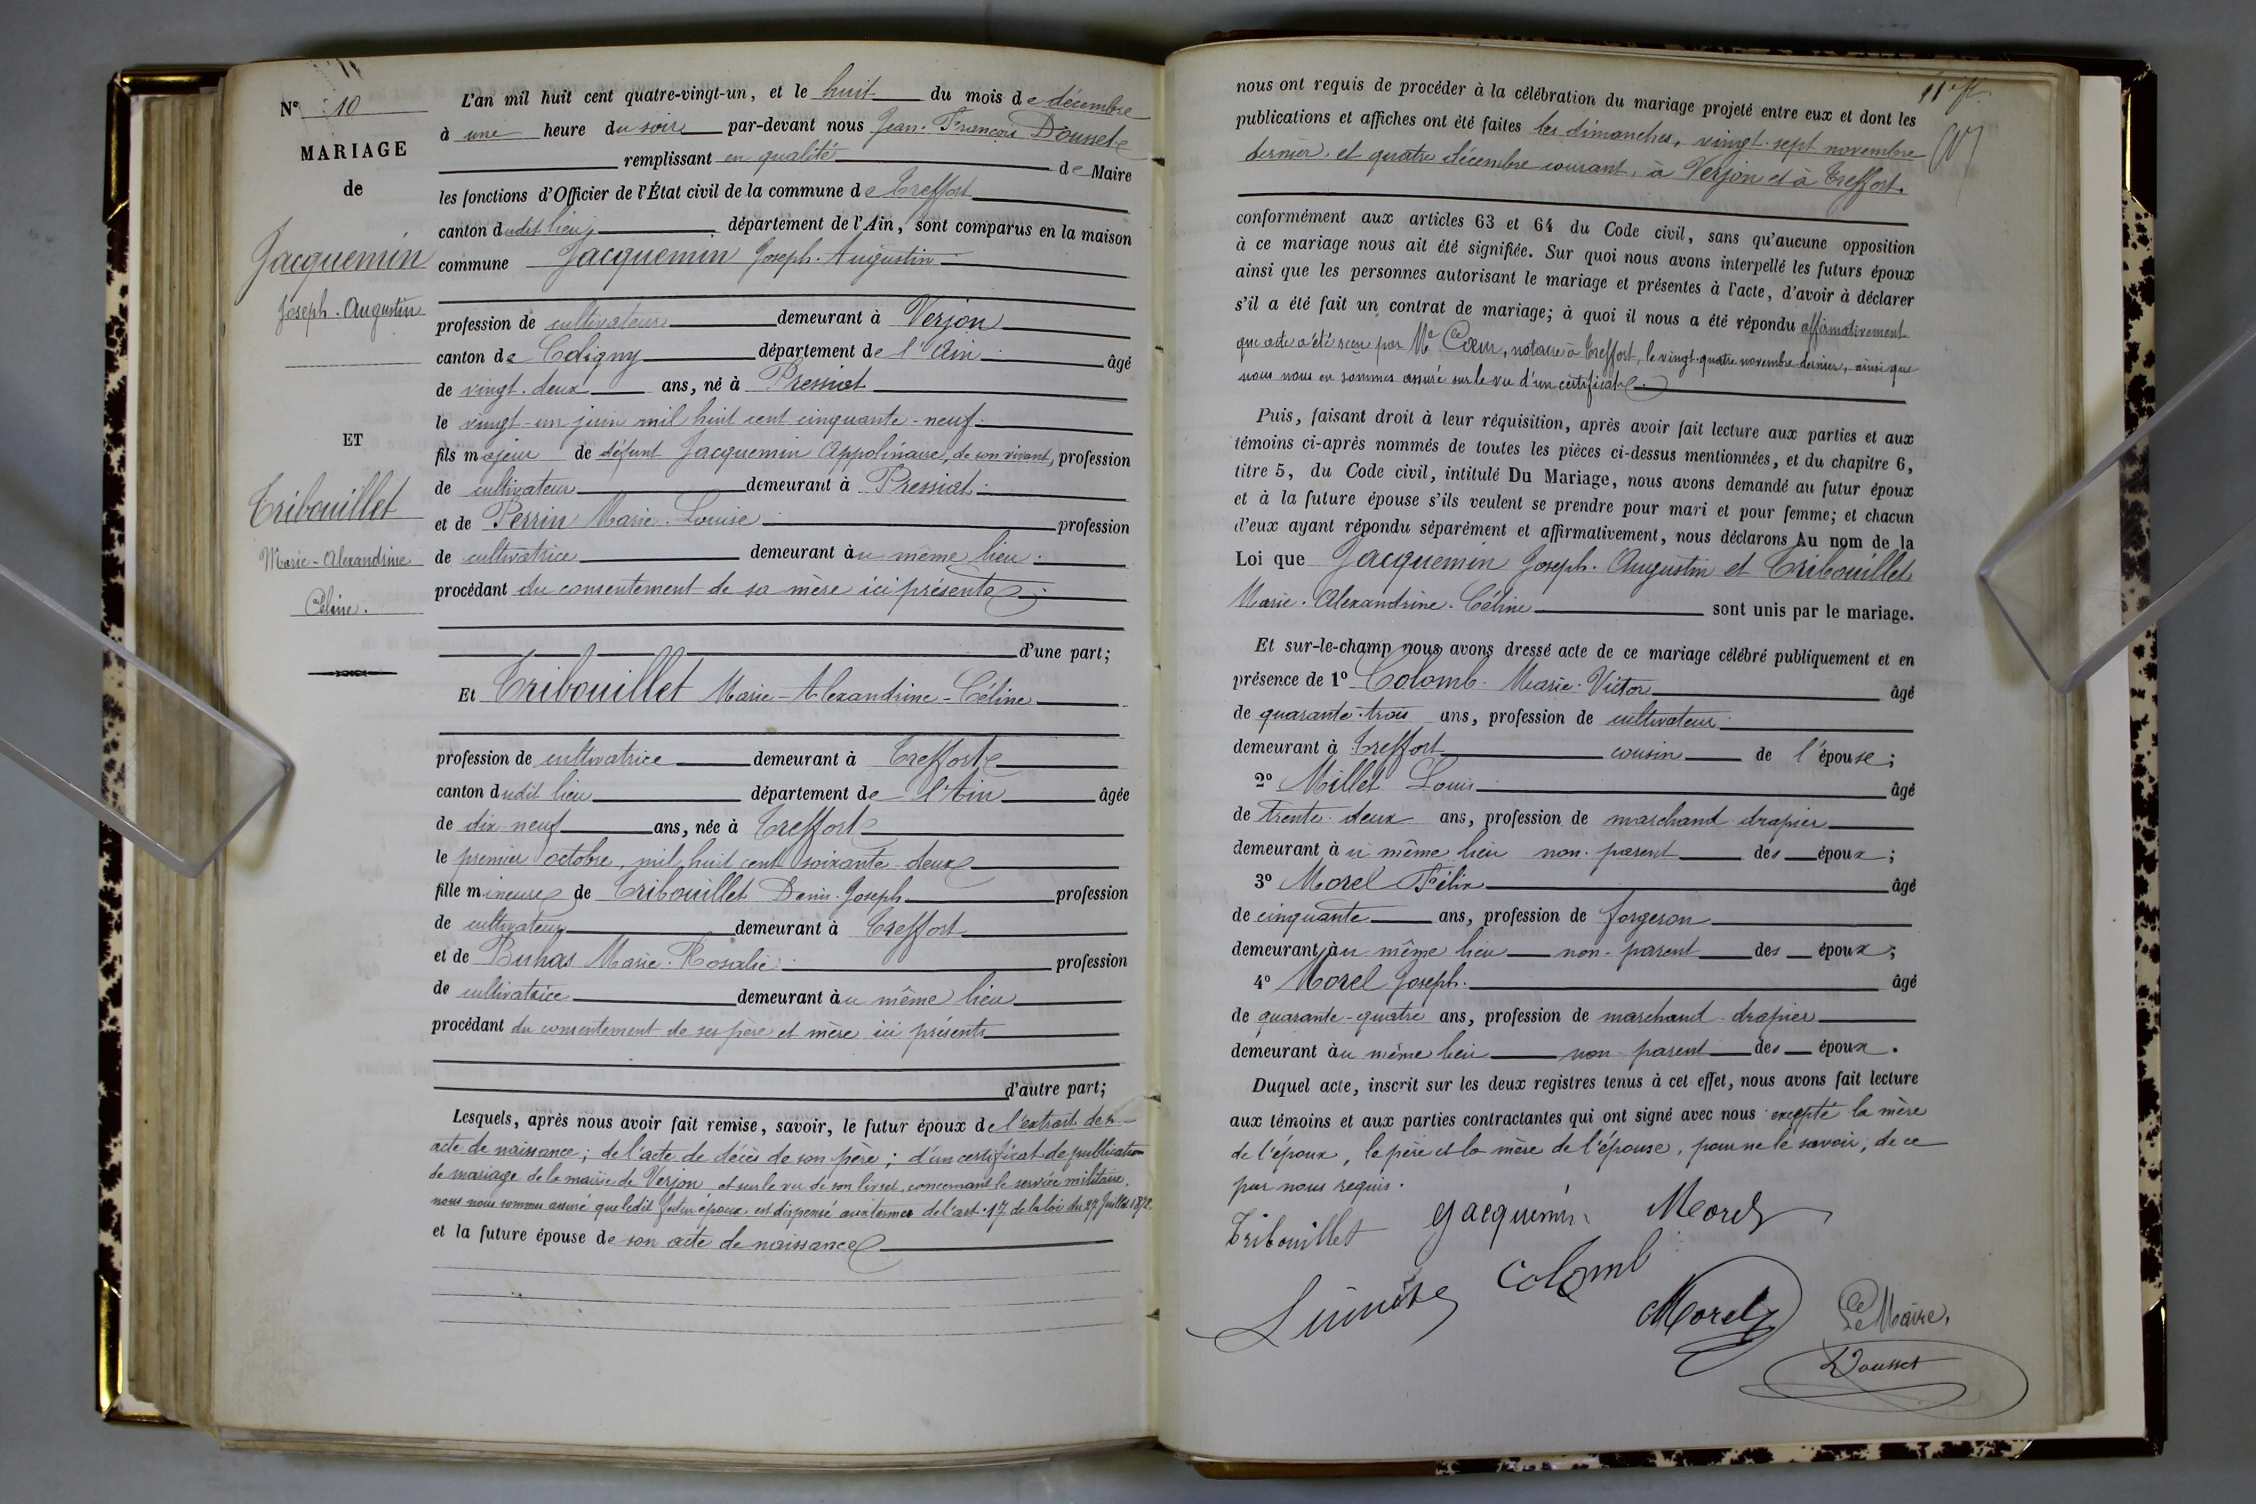 N° 10
MARIAGE
de
Jacquemin
Joseph. Augustin
ET
Tribouillet
Marie-Alexandrine
Céline.
L'an mil huit cent quatre-vingt-un, et le huit du mois de décembre
à une heure du soir par-devant nous Jean-François Dousset
remplissant en qualité de Maire
les fonctions d'Officier de l'État civil de la commune de Treffort
canton dudit lieu, département de l'Ain, sont comparus en la maison
commune Jacquemin Joseph-Augustin
profession de cultivateur demeurant à Verjon
canton de Coligny département de l'Ain âgé
de vingt-deux ans, né à Pressiat
le vingt-un juin mil huit cent cinquante-neuf
fils majeur de défunt Jacquemin Appolinaire, de son vivant, profession
de cultivateur demeurant à Pressiat
et de Perrin Marie-Louise profession
de cultivatrice demeurant au même lieu
procédant du consentement de sa mère ici présente
d'une part;
Et Tribouillet Marie-Alexandrine-Céline
profession de cultivatrice demeurant à Treffort
canton dudit lieu département de l'Ain âgée
de dix neuf ans, née à Treffort
le premier octobre, mil huit cent soixante-deux
fille mineure de Tribouillet Denis-Joseph profession
de cultivateur demeurant à Treffort
et de Buhas Marie-Rosalie profession
de cultivatrice demeurant au même lieu
procédant du consentement de ses père et mère ici présents
d'autre part;
Lesquels, après nous avoir fait remise, savoir, le futur époux de l'extrait de son
acte de naissance; de l'acte de décès de son père; d'un certificat de publication
de mariage de la mairie de Verjon et sur le vu de son livret, concernant le service militaire,
nous nous sommes assuré que ledit futur époux, est dispensé aux termes de l'art. 17 de la loi du 27 Juillet 1872.
et la future épouse de son acte de naissance
11e ft.
nous ont requis de procéder à la célébration du mariage projeté entre eux et dont les
publications et affiches ont été faites les dimanches, vingt-sept novembre
dernier, et quatre décembre courant, à Verjon et à Treffort.
conformément aux articles 63 et 64 du Code civil, sans qu'aucune opposition
à ce mariage nous ait été signifiée. Sur quoi nous avons interpellé les futurs époux
ainsi que les personnes autorisant le mariage et présentes à l'acte, d'avoir à déclarer
s'il a été fait un contrat de mariage; à quoi il nous a été répondu affirmativement
que acte a été reçu par Me Cœur, notaire à Treffort, le vingt-quatre novembre dernier, ainsi que
nous nous en sommes assuré sur le vu d'un certificat
Puis, faisant droit à leur réquisition, après avoir fait lecture aux parties et aux
témoins ci-après nommés de toutes les pièces ci-dessus mentionnées, et du chapitre 6,
titre 5, du Code civil, intitulé Du Mariage, nous avons demandé au futur époux
et à la future épouse s'ils veulent se prendre pour mari et pour femme; et chacun
d'eux ayant répondu séparément et affirmativement, nous déclarons Au nom de la
Loi que Jacquemin Joseph-Augustin et Tribouillet
Marie-Alexandrine-Céline sont unis par le mariage.
Et sur-le-champ nous avons dressé acte de ce mariage célébré publiquement et en
présence de 1° Colomb Marie-Victor âgé
de quarante-trois ans, profession de cultivateur
demeurant à Treffort cousin de l'épouse;
2° Millet Louis âgé
de trente-deux ans, profession de marchand-drapier
demeurant au même lieu non-parent des époux;
3° Morel Félix âgé
de cinquante ans, profession de forgeron
demeurant au même lieu non-parent des époux;
4° Morel Joseph. âgé
de quarante-quatre ans, profession de marchand-drapier
demeurant au même lieu non-parent des époux.
Duquel acte, inscrit sur les deux registres tenus à cet effet, nous avons fait lecture
aux témoins et aux parties contractantes qui ont signé avec nous excepté la mère
de l'époux, le père et la mère de l'épouse, pour ne le savoir, de ce
par nous requis.
Tribouillet Jacquemin Morel
Colomb
Morel
Le Maire,
Dousset